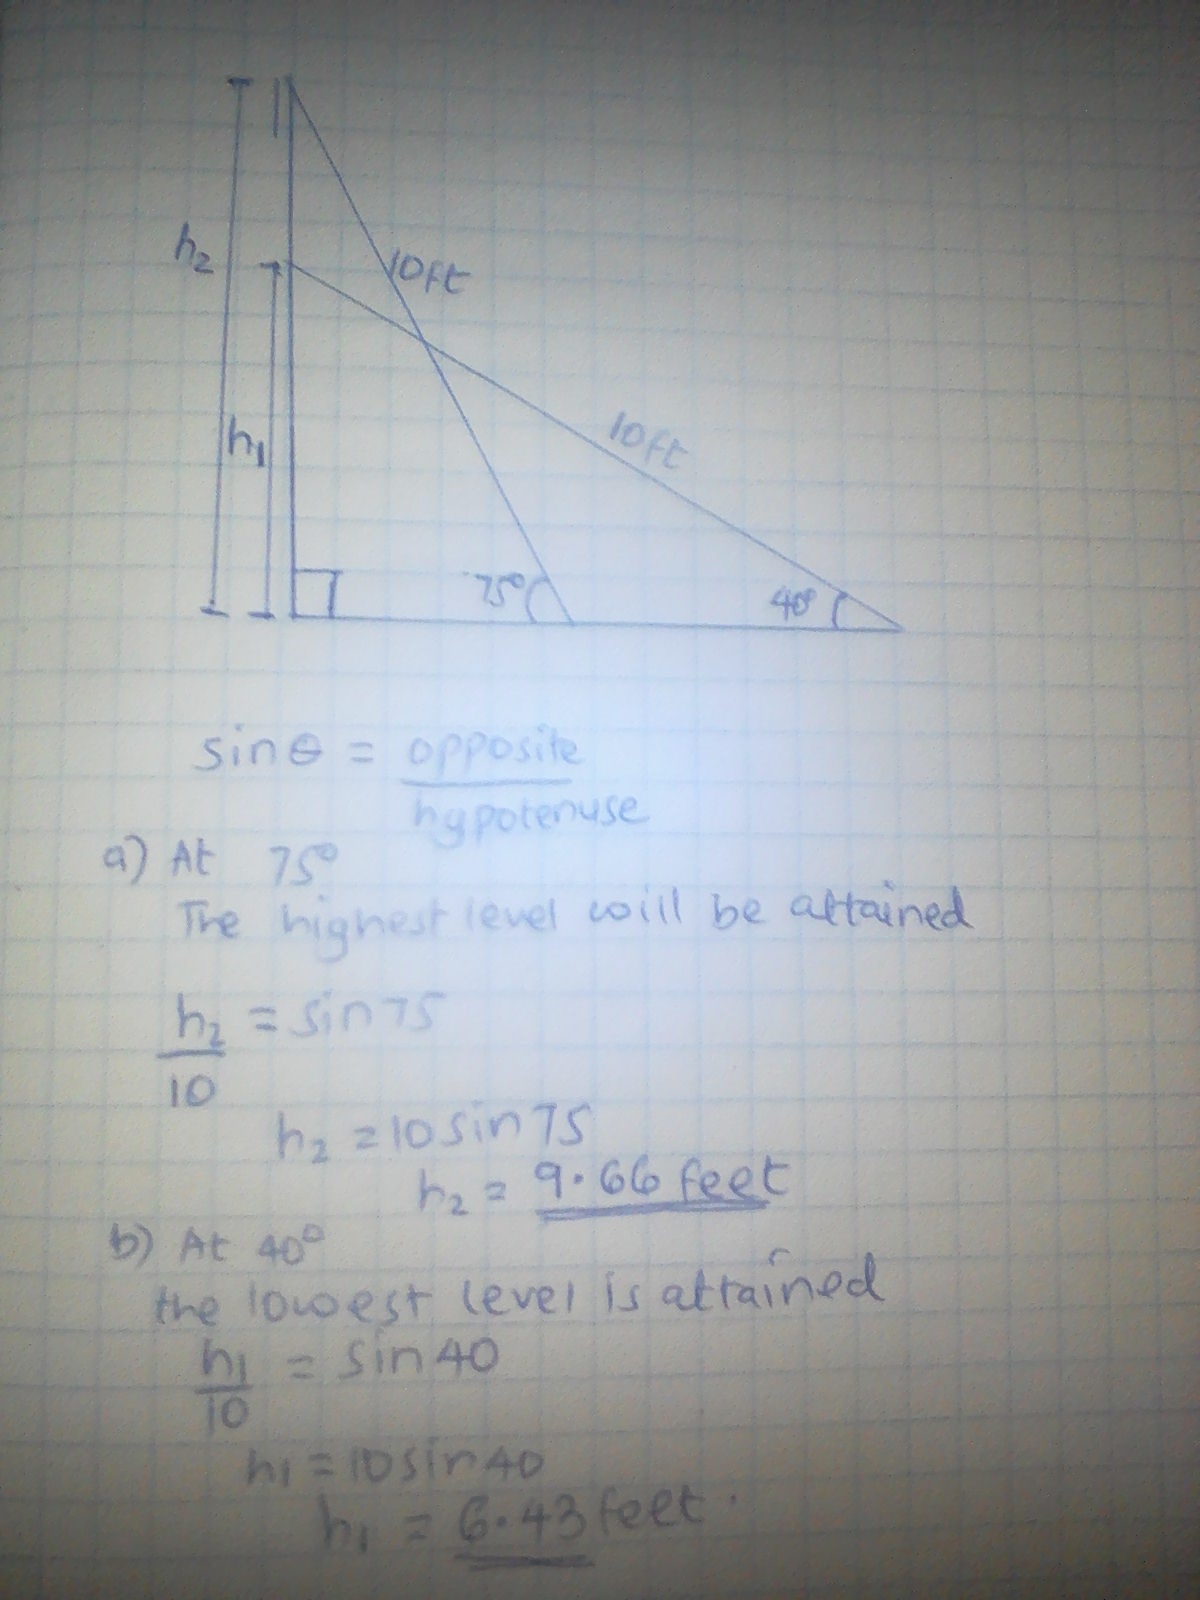 h₂
10ft
h₁
10ft
75°
40°
sinθ = opposite
hypotenuse
a) At 75°
The highest level will be attained
h₂ = sin75
10
h₂ = 10 sin75
h₂ = 9.66 feet
b) At 40°
the lowest level is attained
h₁ = sin40
10
h₁ = 10sin40
h₁ = 6.43 feet.